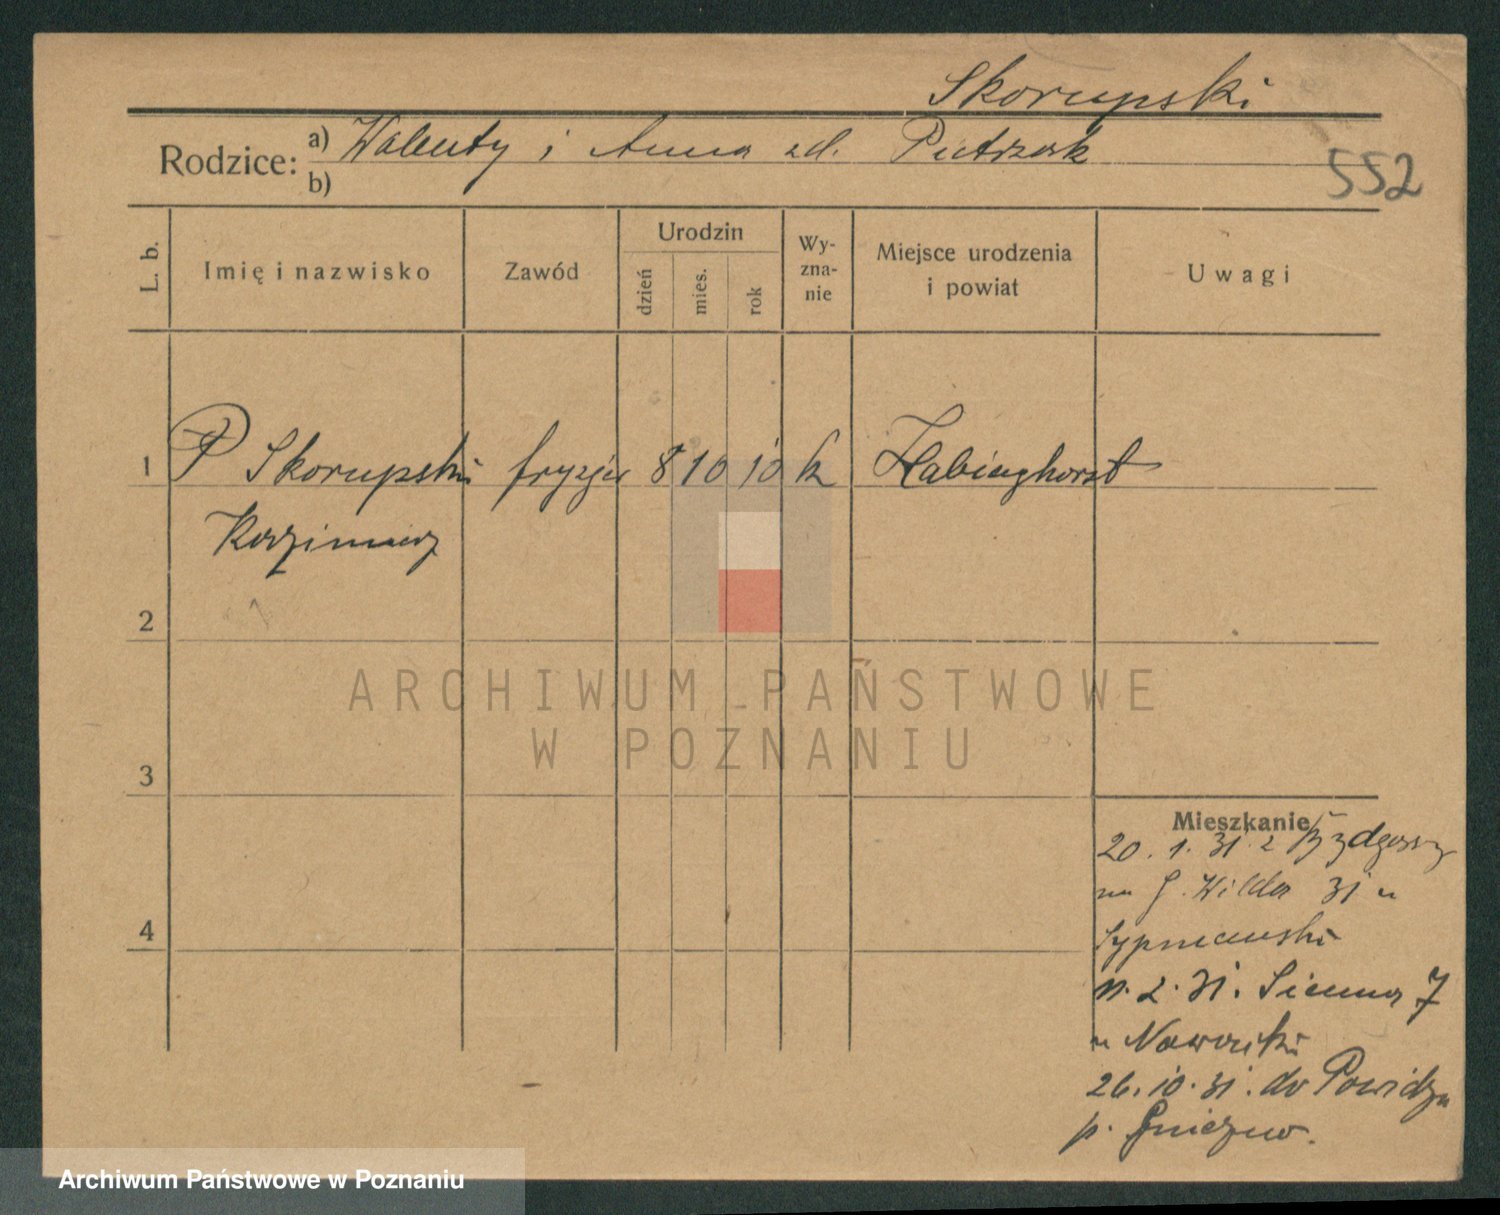 Skorupski
Rodzice: a) Walenty i Anna zd. Pietrzak
b)
552
L. b.
Imię i nazwisko
Zawód
Urodzin
dzień
mies.
rok
Wy-
zna-
nie
Miejsce urodzenia
i powiat
Uwagi
1 Skorupski fryzjer 8 10 10 k Habinghorst
Kazimierz
2
3
4
Mieszkanie
20. 1. 31. z Bydgoszczy
na G. Wilda 31 u
Sypniewski
11. 2. 31. Sienna 7
u Nawrocki
26. 10. 31. do Powidza
p. Gniezno.
ARCHIWUM PAŃSTWOWE
W POZNANIU
Archiwum Państwowe w Poznaniu